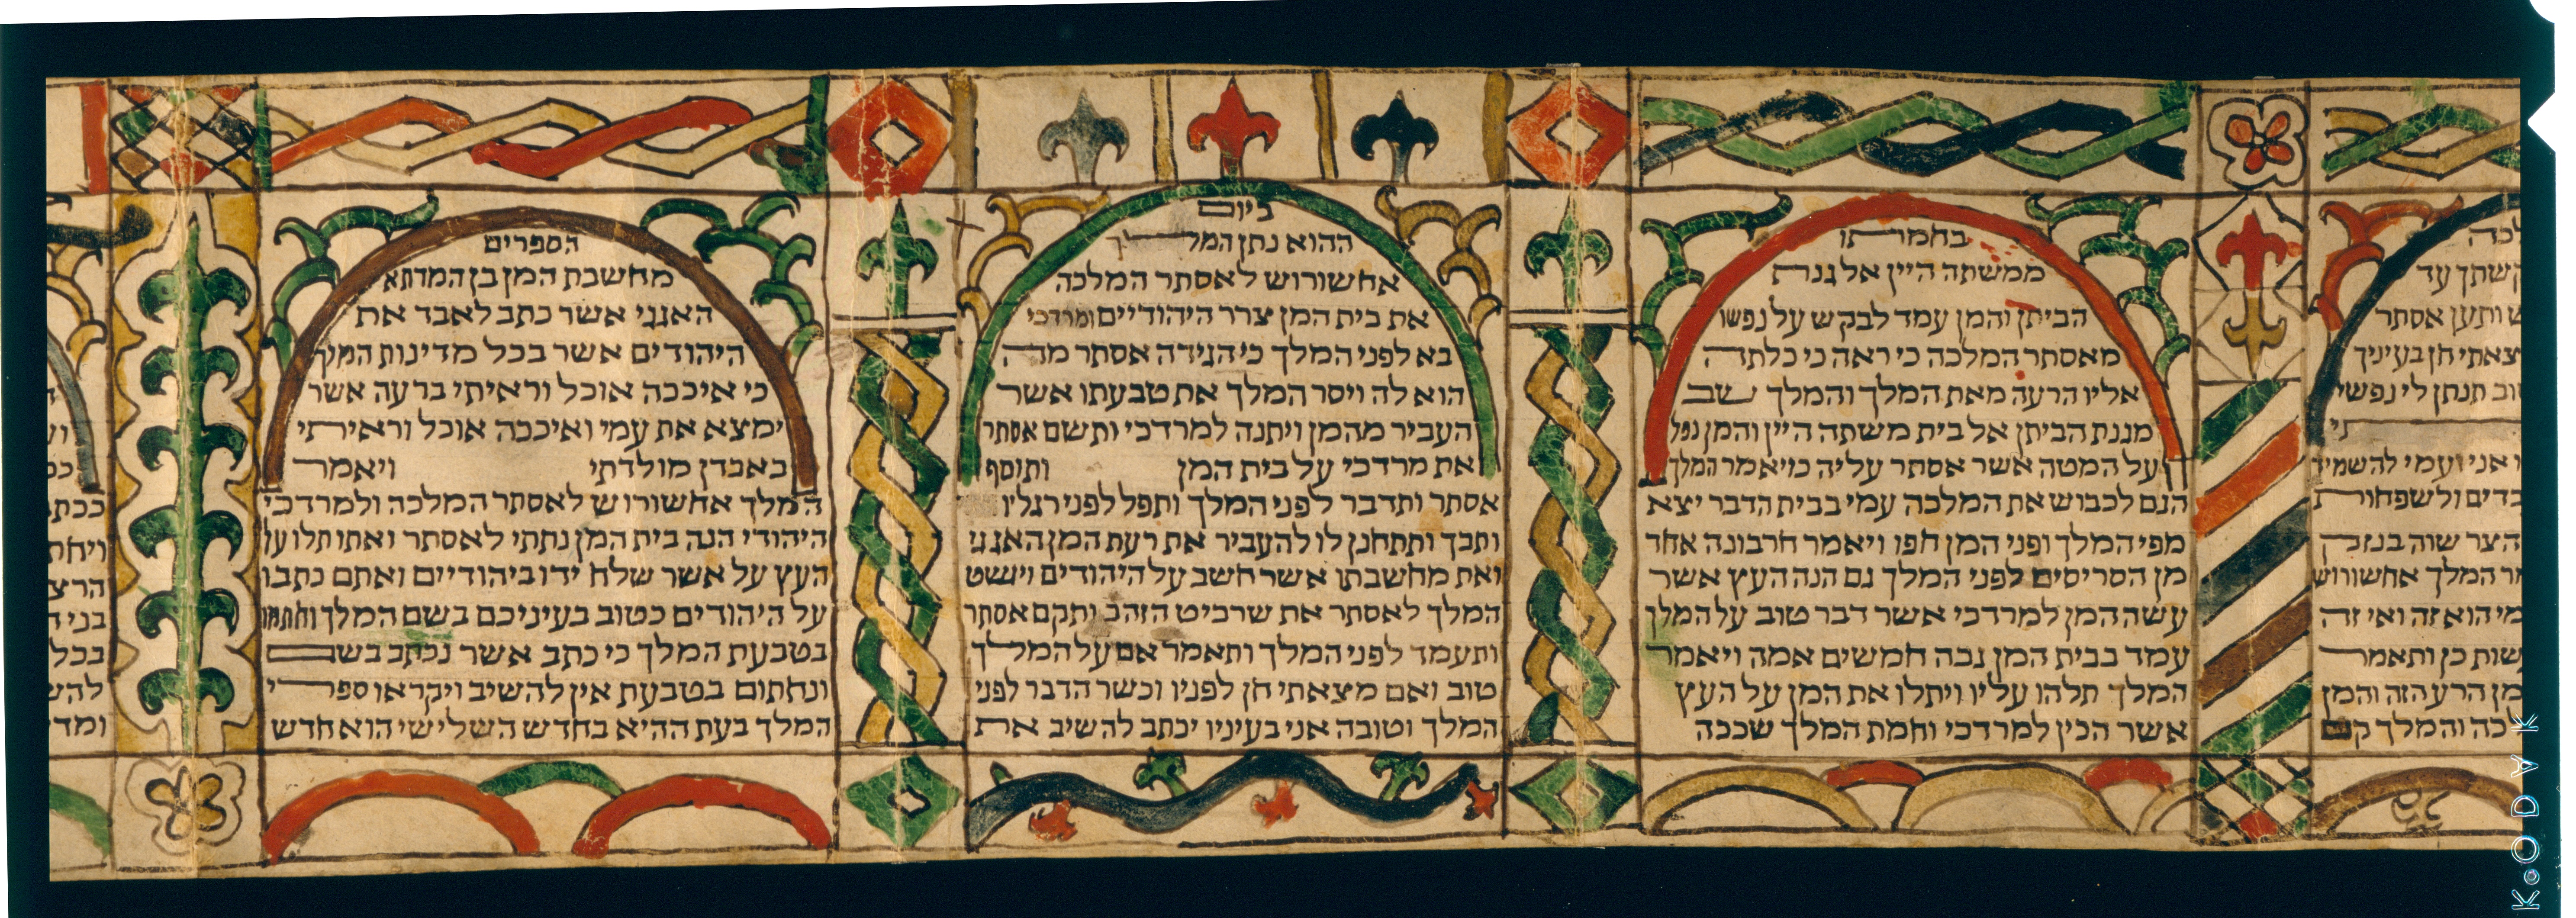 לכה
קשתך עד
ש ותען אסתר
צאתי חן בעיניך
וב תנתן לי נפשי
תי
ו אני ועמי להשמיד
בדים ולשפחות
הצר שוה בנזק
מר המלך אחשורוש
מי הוא זה ואי זה
שות כן ותאמר
מן הרע הזה והמן
כה והמלך קם
בחמתו
ממשתה היין אל גנת
הביתן והמן עמד לבקש על נפשו
מאסתר המלכה כי ראה כי כלתה
אליו הרעה מאת המלך והמלך שב
מגנת הביתן אל בית משתה היין והמן נפל
על המטה אשר אסתר עליה ויאמר המלך
הגם לכבוש את המלכה עמי בבית הדבר יצא
מפי המלך ופני המן חפו ויאמר חרבונה אחד
מן הסריסים לפני המלך גם הנה העץ אשר
עשה המן למרדכי אשר דבר טוב על המלך
עמד בבית המן גבה חמשים אמה ויאמר
המלך תלהו עליו ויתלו את המן על העץ
אשר הכין למרדכי וחמת המלך שככה
ביום
ההוא נתן המלך
אחשורוש לאסתר המלכה
את בית המן צרר היהודיים ומרדכי
בא לפני המלך כי הגידה אסתר מה
הוא לה ויסר המלך את טבעתו אשר
העביר מהמן ויתנה למרדכי ותשם אסתר
את מרדכי על בית המן ותוסף
אסתר ותדבר לפני המלך ותפל לפני רגליו
ותבך ותתחנן לו להעביר את רעת המן האגגי
ואת מחשבתו אשר חשב על היהודים ויושט
המלך לאסתר את שרביט הזהב ותקם אסתר
ותעמד לפני המלך ותאמר אם על המלך
טוב ואם מצאתי חן לפניו וכשר הדבר לפני
המלך וטובה אני בעיניו יכתב להשיב את
הספרים
מחשבת המן בן המדתא
האגגי אשר כתב לאבד את
היהודים אשר בכל מדינות המלך
כי איככה אוכל וראיתי ברעה אשר
ימצא את עמי ואיככה אוכל וראיתי
באבדן מולדתי ויאמר
המלך אחשורוש לאסתר המלכה ולמרדכי
היהודי הנה בית המן נתתי לאסתר ואתו תלו על
העץ על אשר שלח ידו ביהודיים ואתם כתבו
על היהודים כטוב בעיניכם בשם המלך וחתמו
בטבעת המלך כי כתב אשר נכתב בשם
ונחתום בטבעת אין להשיב ויקראו ספרי
המלך בעת ההיא בחדש השלישי הוא חדש
ככת
ויחת
הרצ
בני ה
בכל
להש
ומד
KODAK